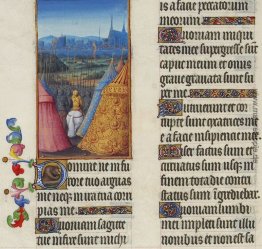 Domine ne in fu
rore tuo arguas
me neq; in ira tua corri
pias me.
Quoniam sagitte
tue infixe sunt michi
is a facie peccatorum
meorum.
Quoniam iniqui
tates mee supergresse sunt
caput meum et onus
grave gravata sunt su
per me.
Putruerunt et cor
rupte sunt cicatrices me
e a facie insipientie me
Miser factus sum et
curvatus sum usq; in
finem tota die contri
status
Quoniam lumbi
mei impleti sunt illusio
nibus et non est sanitas